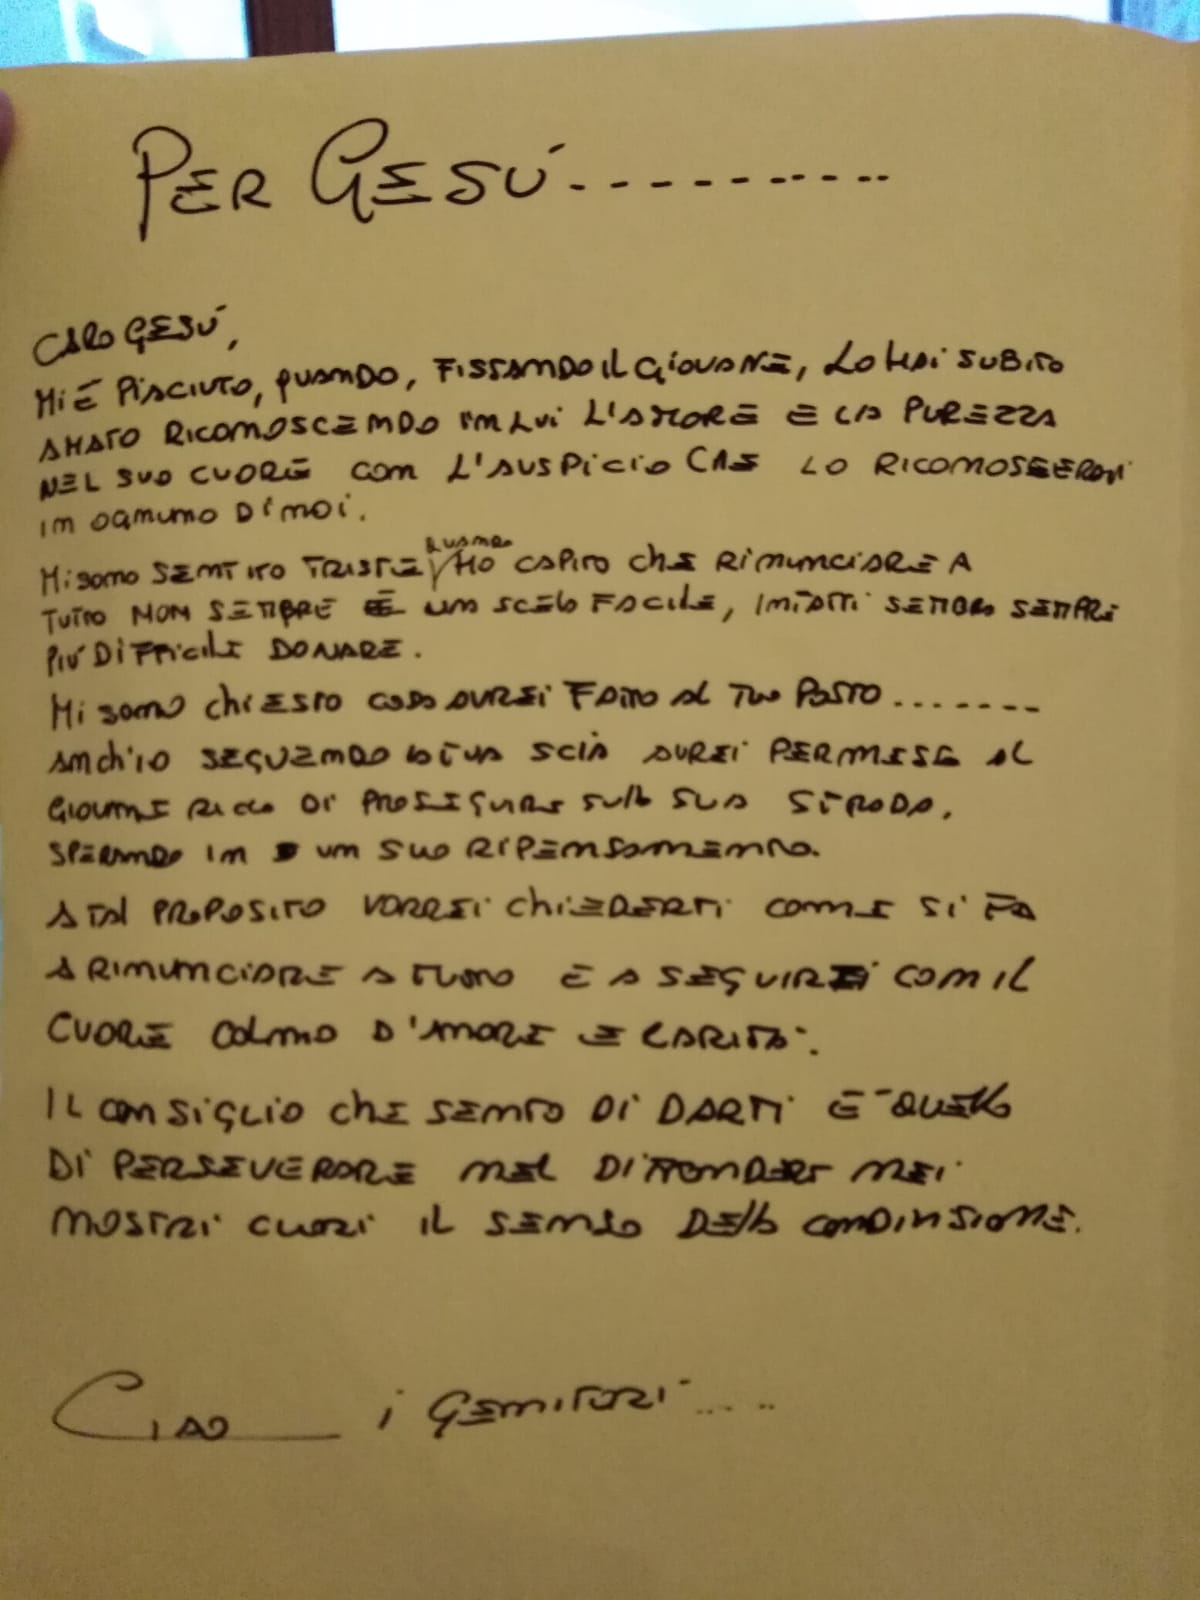 PER GESÚ...........
CARO GESÚ,
MI É PIACIUTO, QUANDO, FISSANDO IL GIOVANE, LO HAI SUBITO
AMATO RICONOSCENDO IN LUI L'AMORE E LA PUREZZA
NEL SUO CUORE CON L'AUSPICIO CHE LO
IN OGNUNO DI NOI.
MI SONO SENTITO TRISTE QUANDO HO CAPITO CHE RINUNCIARE A
TUTTO NON SEMPRE É UNA SCELTA FACILE, INFATTI SEMBRA SEMPRE
PIÚ DIFFICILE DONARE.
MI SONO CHIESTO COSA AVREI FATTO AL TUO POSTO.......
ANCH'IO SEGUENDO LA TUA SCIA AVREI PERMESSO AL
GIOVANE RICCO DI PROSEGUIRE SULLA SUA STRADA,
SPERANDO IN UN SUO RIPENSAMENTO.
A TAL PROPOSITO VORREI CHIEDERTI COME SI FA
A RINUNCIARE A TUTTO E A SEGUIRTI CON IL
CUORE COLMO D'AMORE E CARITA'.
IL CONSIGLIO CHE SENTO DI DARTI E' QUELLO
DI PERSEVERARE NEL DIFFONDERE NEI
NOSTRI CUORI IL SENSO DELLA CONDIVISIONE.
CIAO i GENITORI....